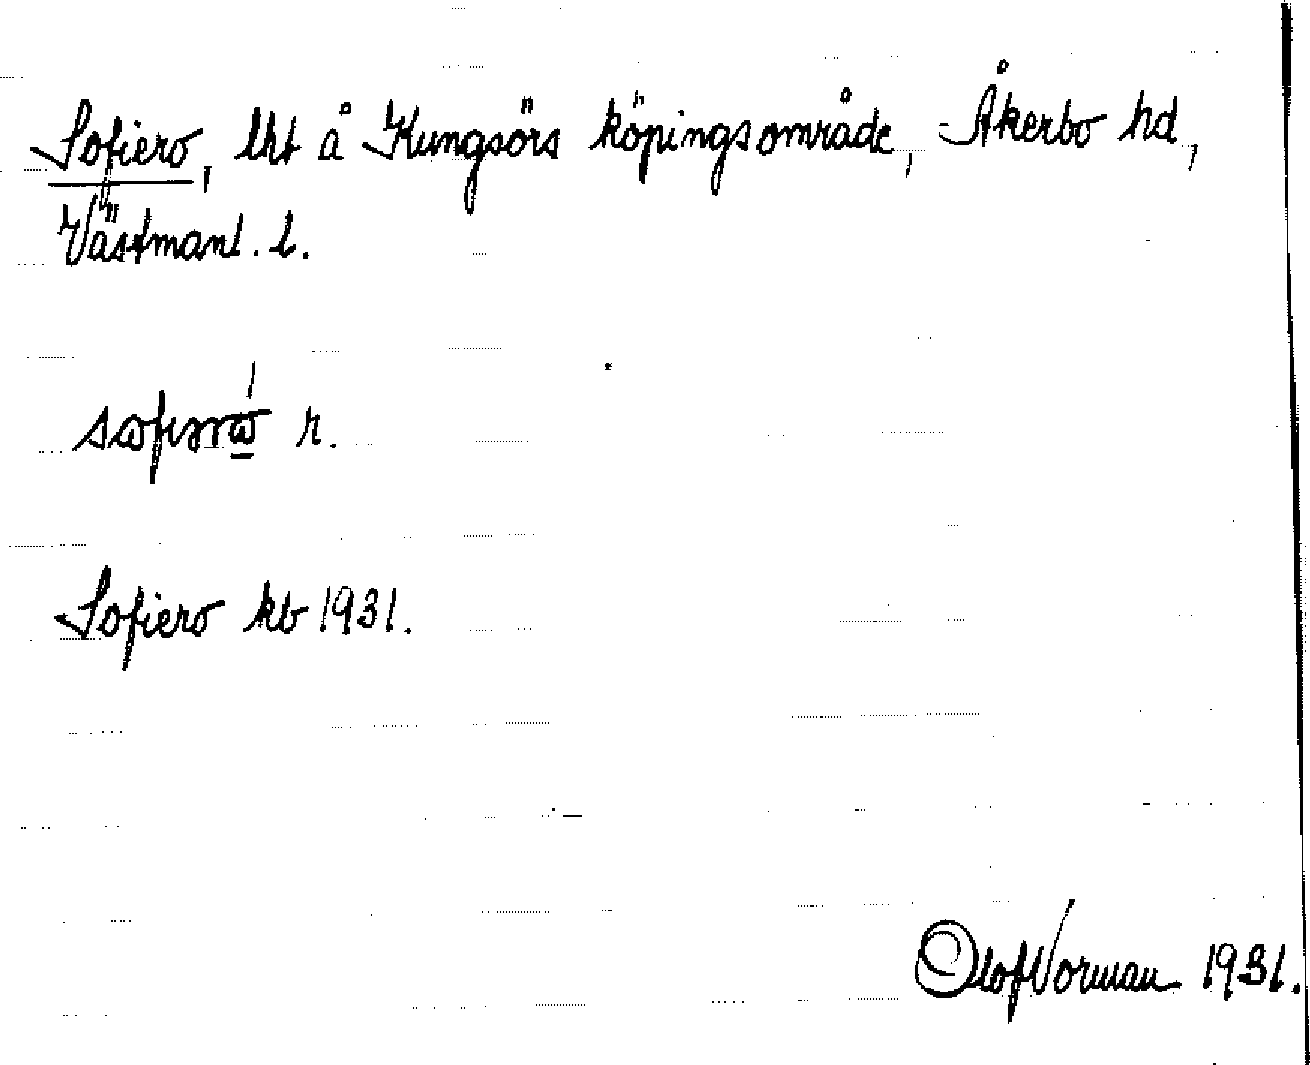 Sofiero, lht å Kungsörs köpingsområde, Åkerbo hd,
Västmanl. l.
r.
Sofiero kb 1931.
Olof Norman 1931.